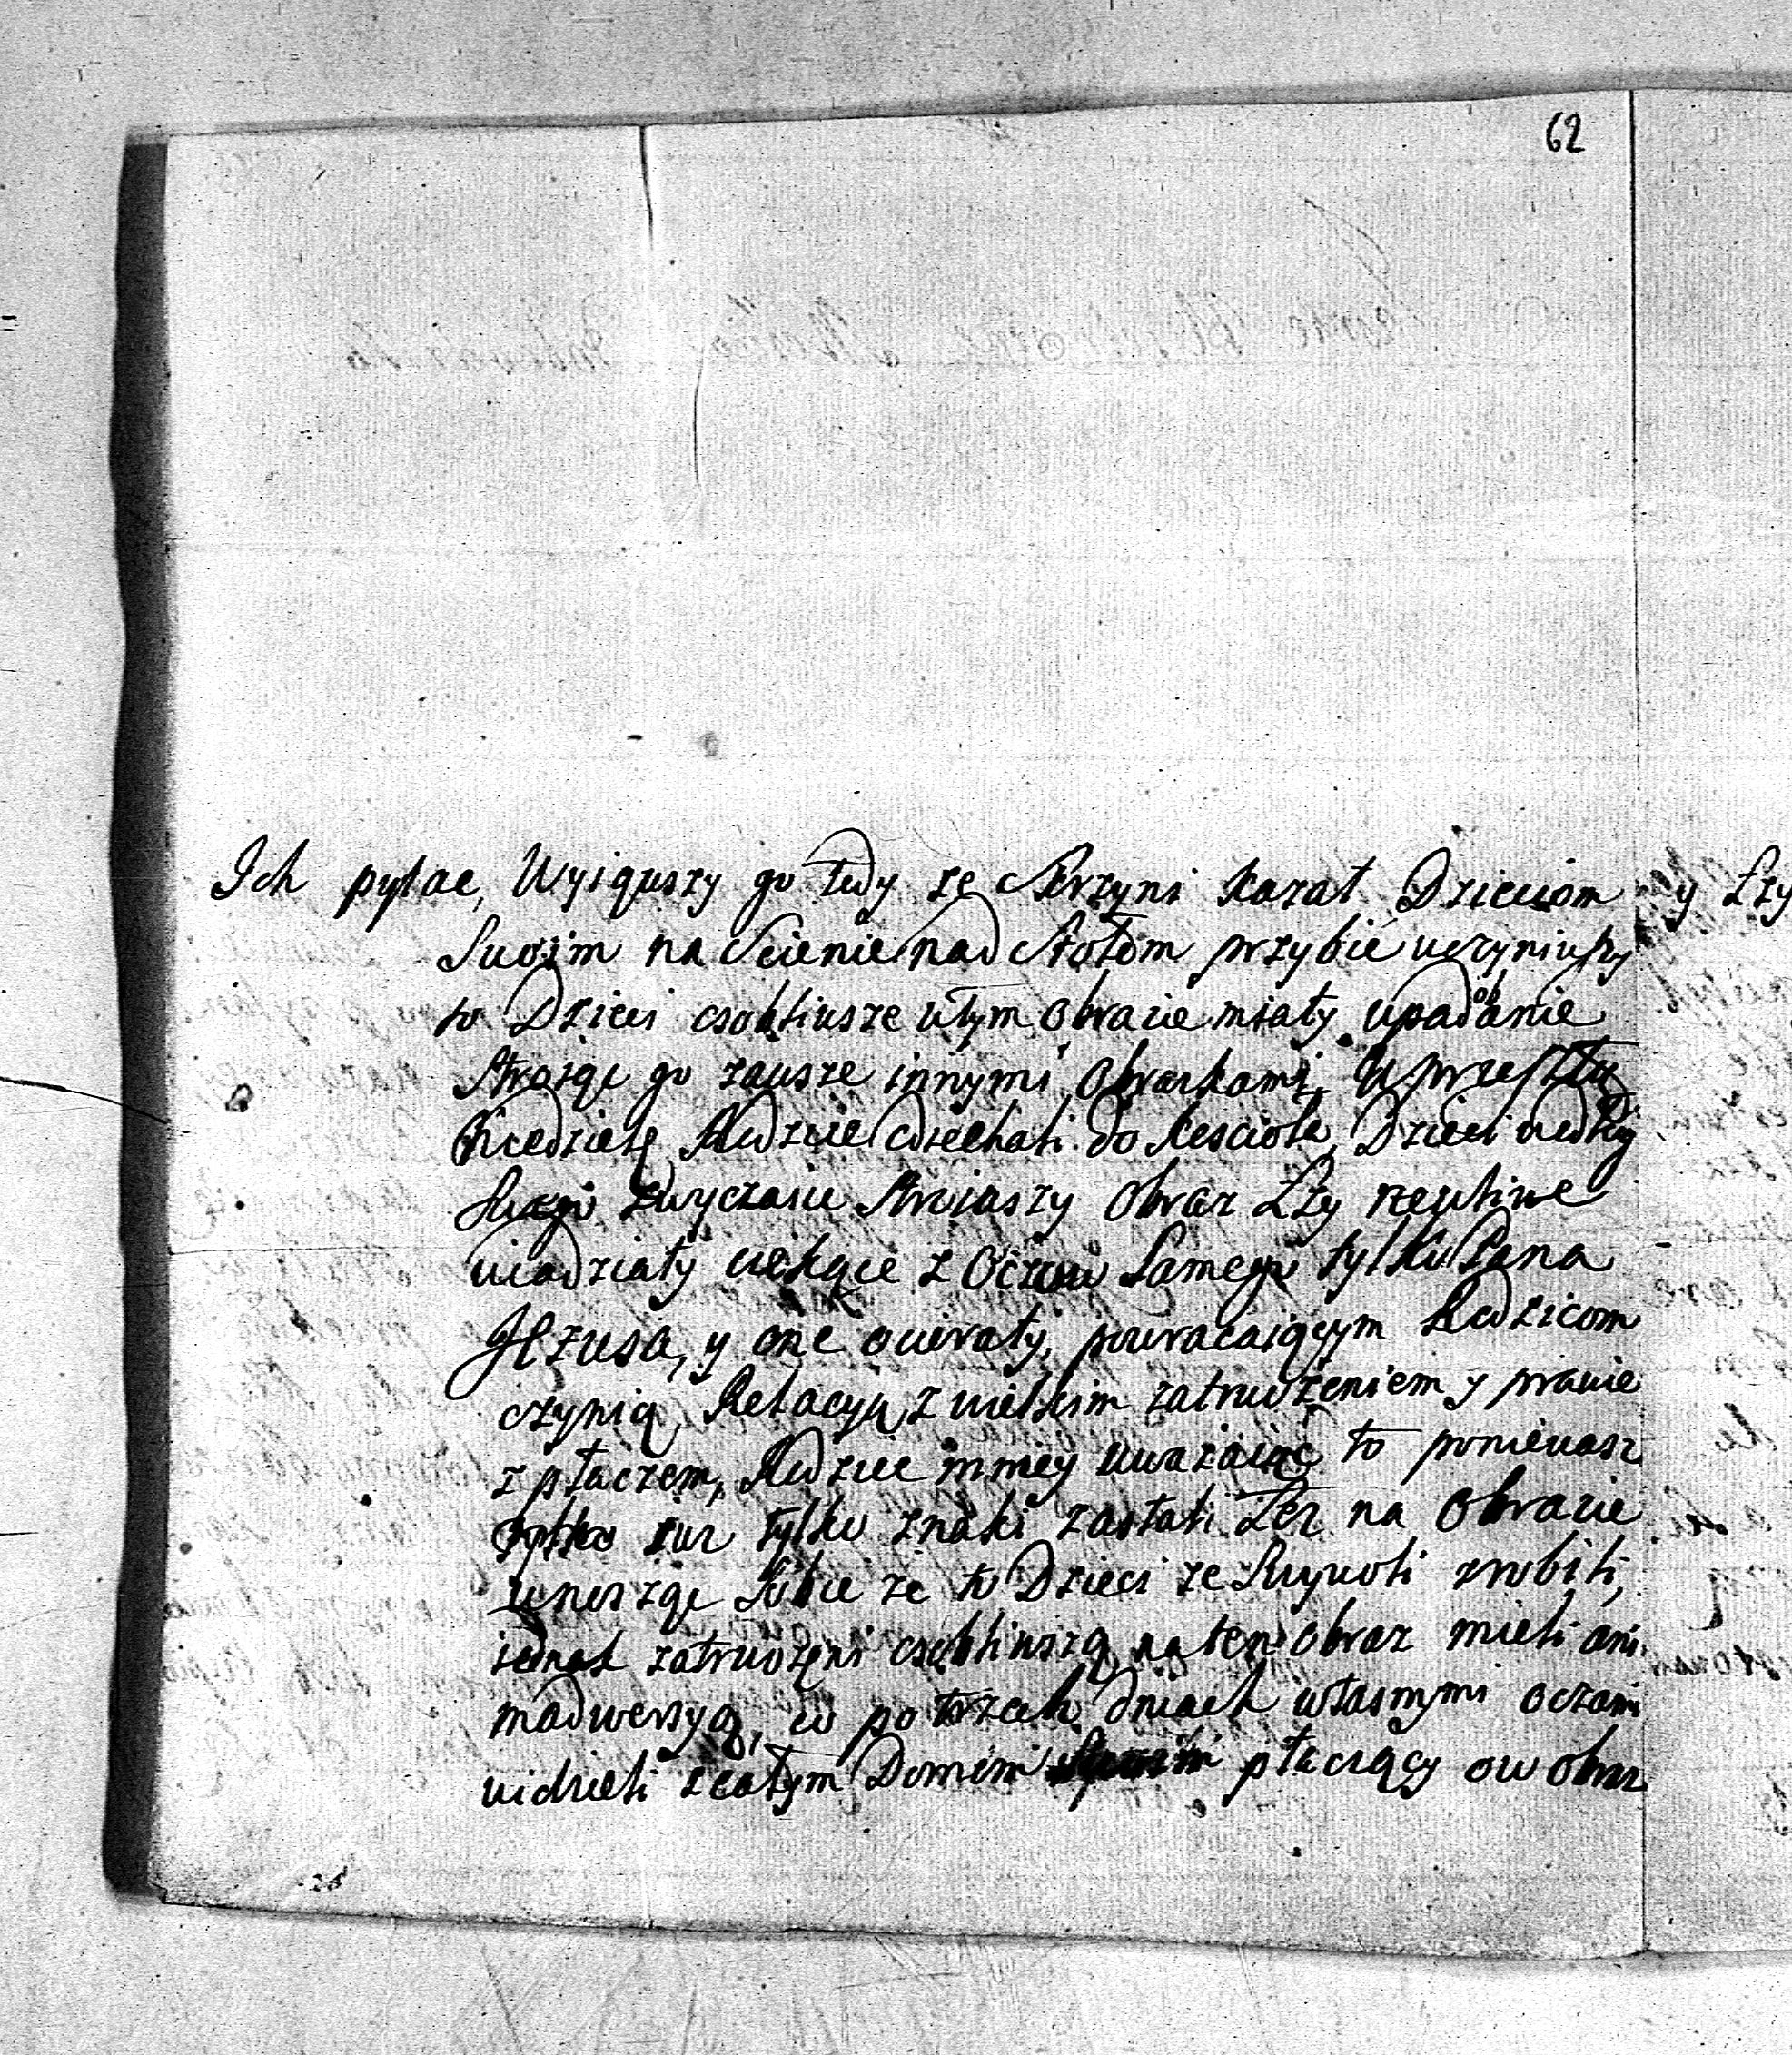 62
Ich pytac, Wyiąwszy go tedy ze Skrzyni kazał Dzieciom
Swoim na Scienie nad Stołom przybić uczyniwszy
to Dzieci osobliwsze w tym obrazie miały upadobanie
Stroiąc go zawsze innymi Obrazkami, w przeszłą
Niedzielę Rodzice odiechali do Kościoła, Dzieci według
swego zwyczaiu Stroiwszy Obraz Łzy rzewliwe
wiadziały ciekące z Oczow Samego tylko Pana
JEzusa, y one ocierały, powracaiącym Rodzicom
czynią Relacyą z wielkim zatrwożeniem y prawie
z płaczem, Rodzice mniey uważaiąc to ponieważ
iuz tylko znaki zastali Łez na Obrazie
wnosząc Sobie że to Dzieci ze Swywoli zrobili,
iednak zatrwożeni osobliwszą na ten obraz mieli ani
madwersyą, co po trzech dniach własnymi oczami
widzieli z całym Domem płaczący ow obraz
y Łzy